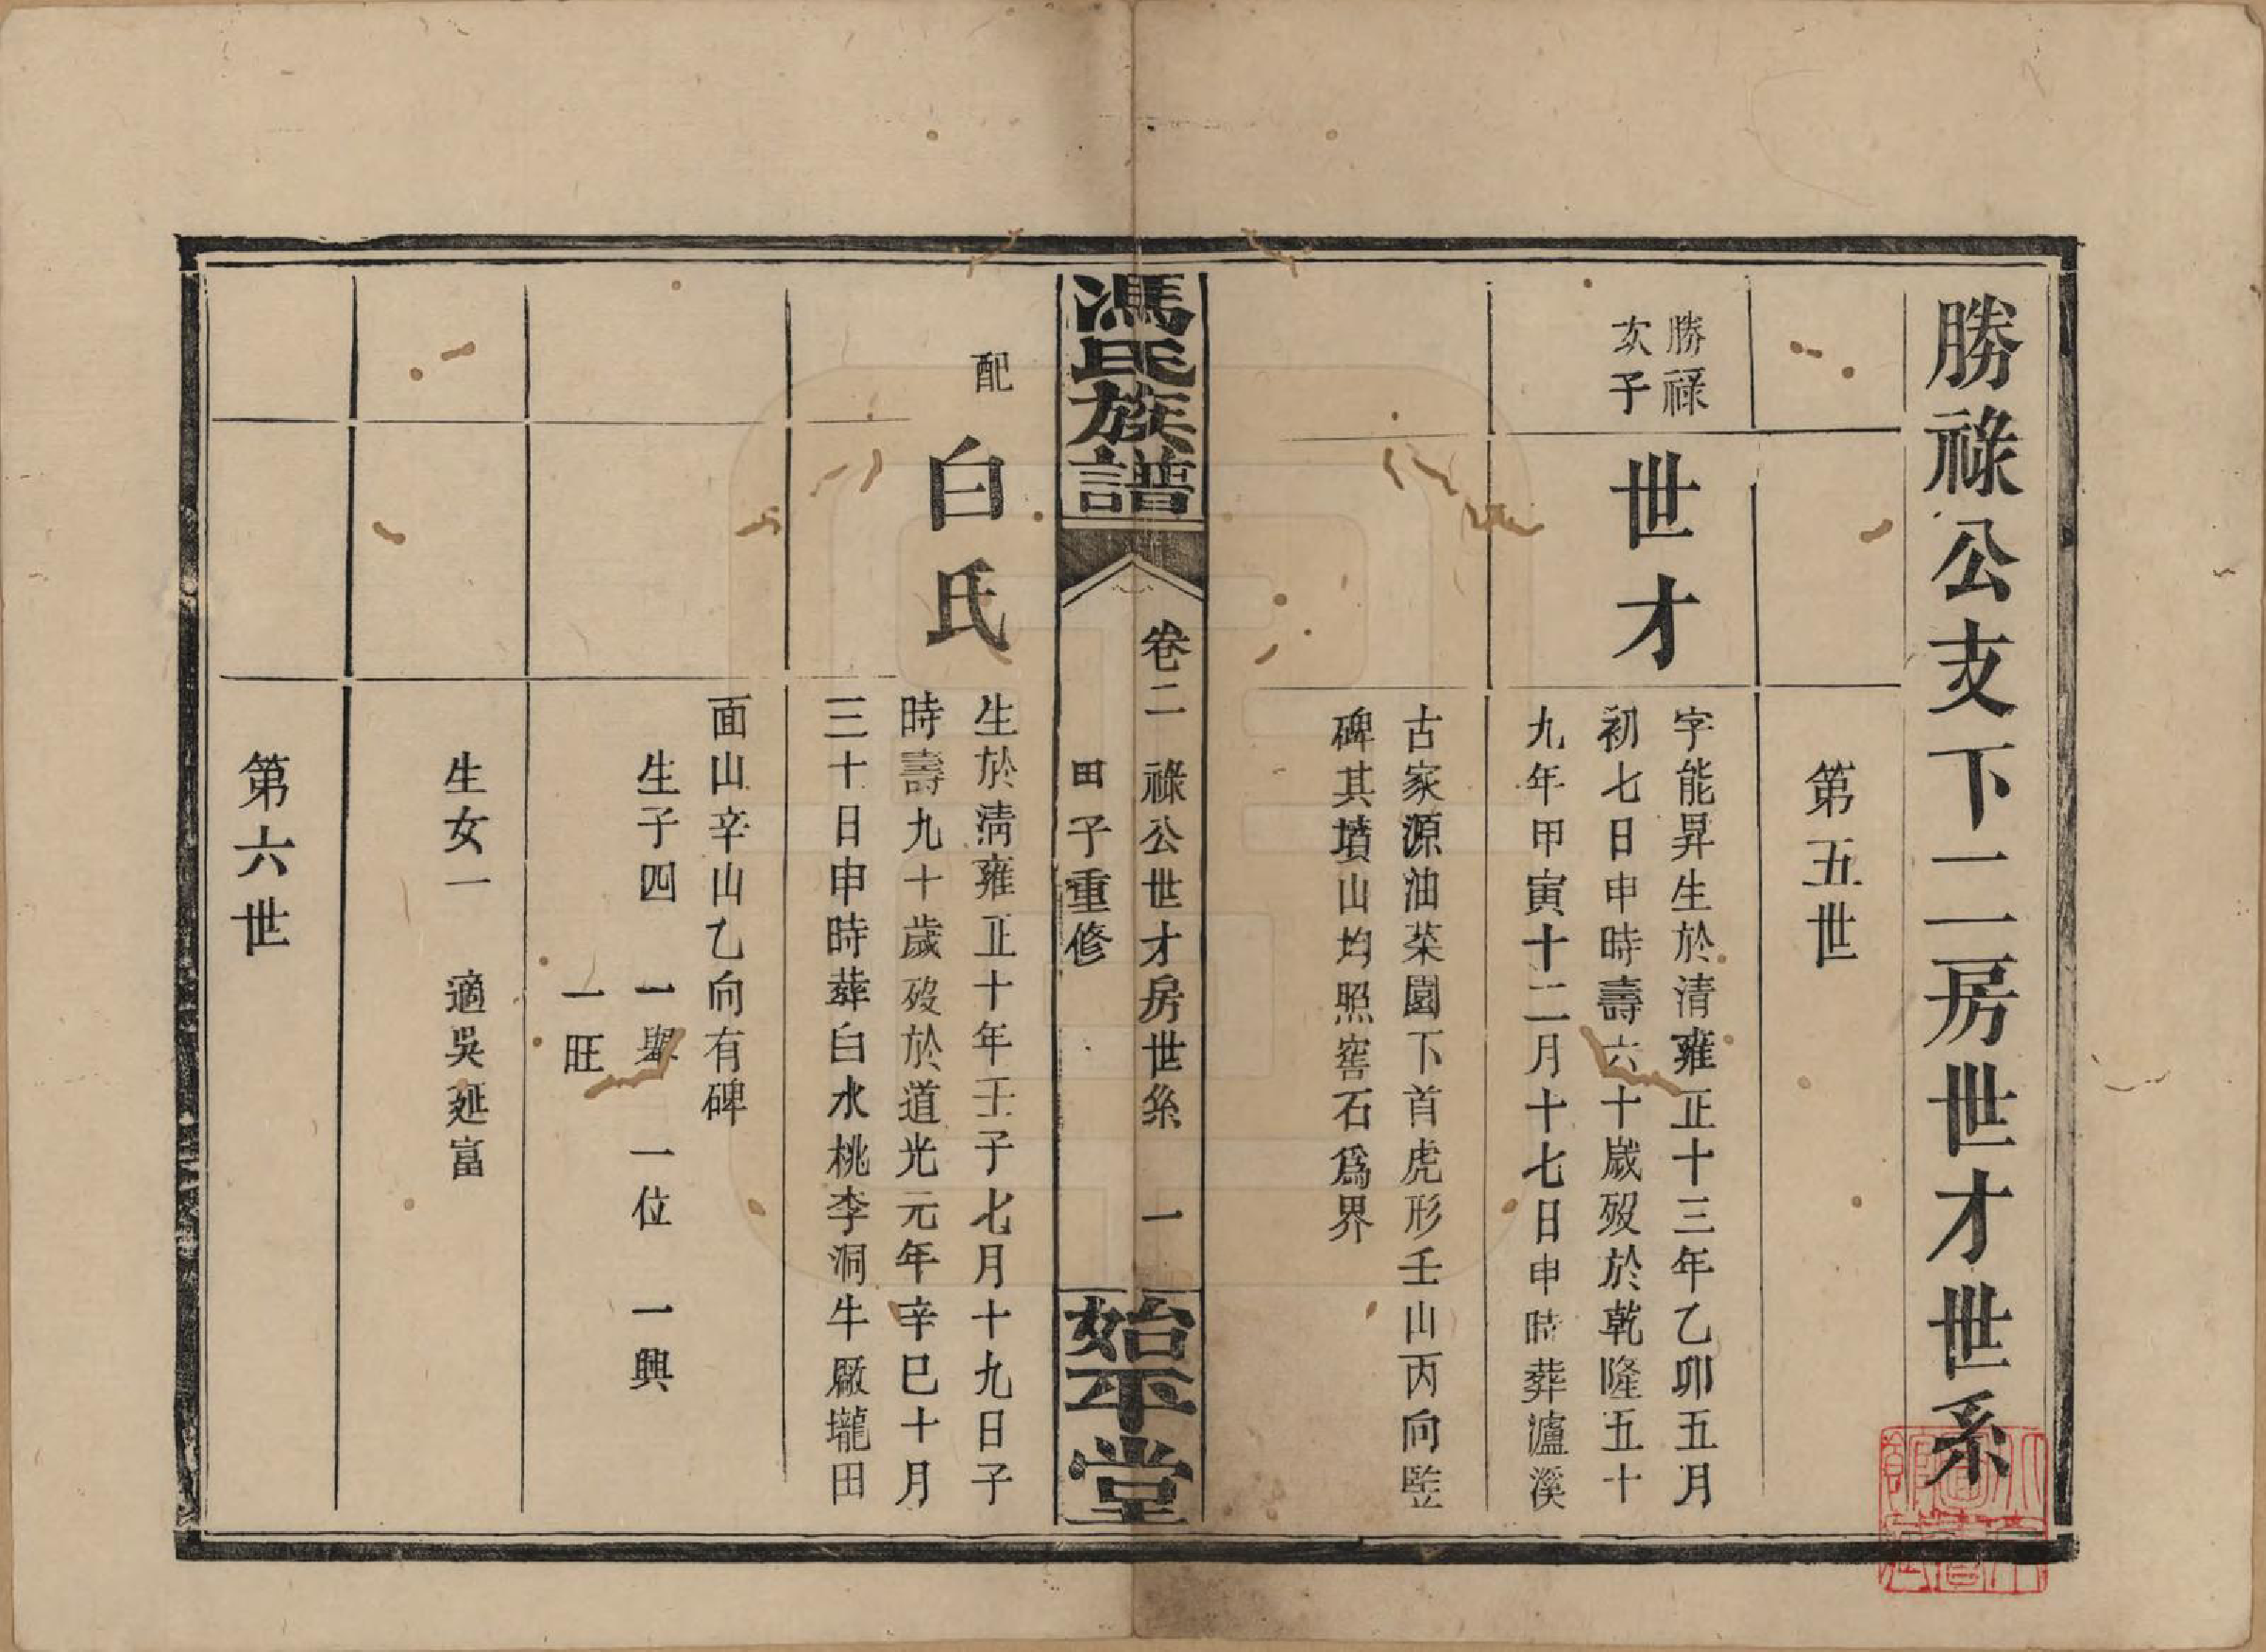 勝祿公支下二房世才世系
第五世
勝祿
次子
世才
字能昇生於清雍正十三年乙卯五月
初七日申時壽六十歲歿於乾隆五十
九年甲寅十二月十七日申時葬瀘溪
古家源油菜園下首虎形壬山丙向監
碑其墳山均照窖石爲界
馮氏族譜
卷二 祿公世才房世系 一
田子重修
始平堂
配
白氏
生於淸雍正十年壬子七月十九日子
時壽九十歲歿於道光元年辛巳十月
三十日申時葬白水桃李洞牛厰壠田
面山辛山乙向有碑
生子四 一舉 一位 一興
一旺
生女一 適吳延富
第六世